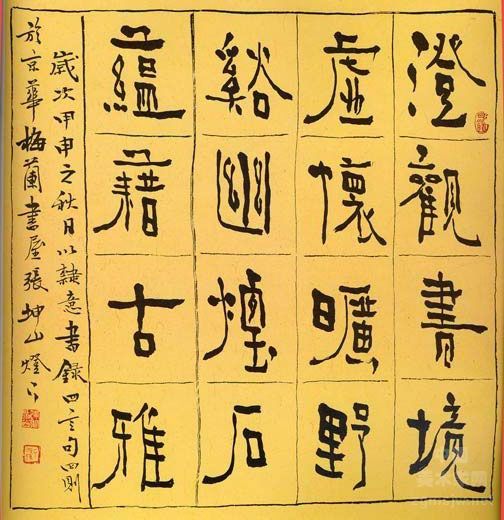 澄觀書境
虛懷曠野
谿幽煙石
蘊藉古雅
歲次甲申之秋月以隸意書錄四言句四則
於京華梅蘭書屋張坤山燈下